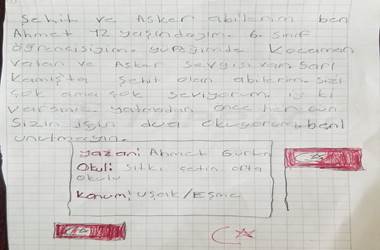 Şehit ve Asker abilerim ben
Ahmet 12 yaşındayım. 6. sınıf
öğrencisiyim. yüreğimde kocaman
vatan ve Asker sevgisi var. Sarı
Kamışta Şehit olan abilerim sizi
çok ama çok seviyorum iyi ki
varsınız yatmadan önce her gün
sizin için dua okuyorum beni
unutmayın.
Yazan: Ahmet
Okul: Sıtkı çetin orta
okulu
Konum: Uşak/Eşme